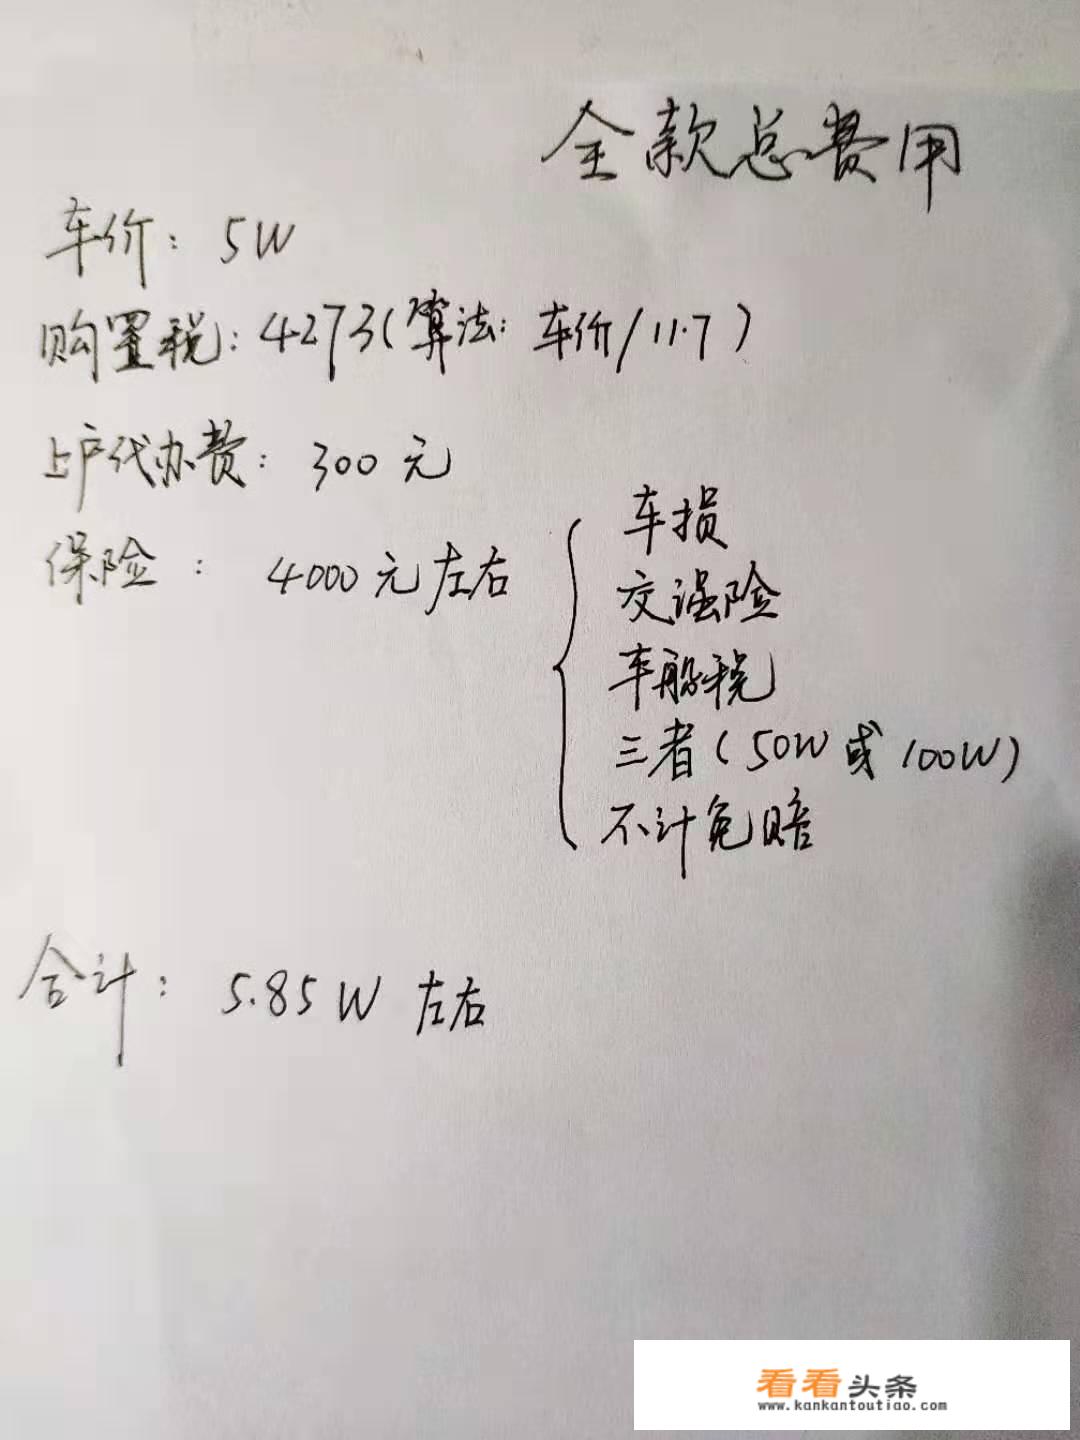 全款总费用
车价：5W
购置税：4273(算法：车价/11.7)
上户代办费：300元
保险：4000元左右
车损
交强险
车船税
三者(50W或100W)
不计免赔
合计：5.85W左右
看看头条
www.kankantoutiao.com